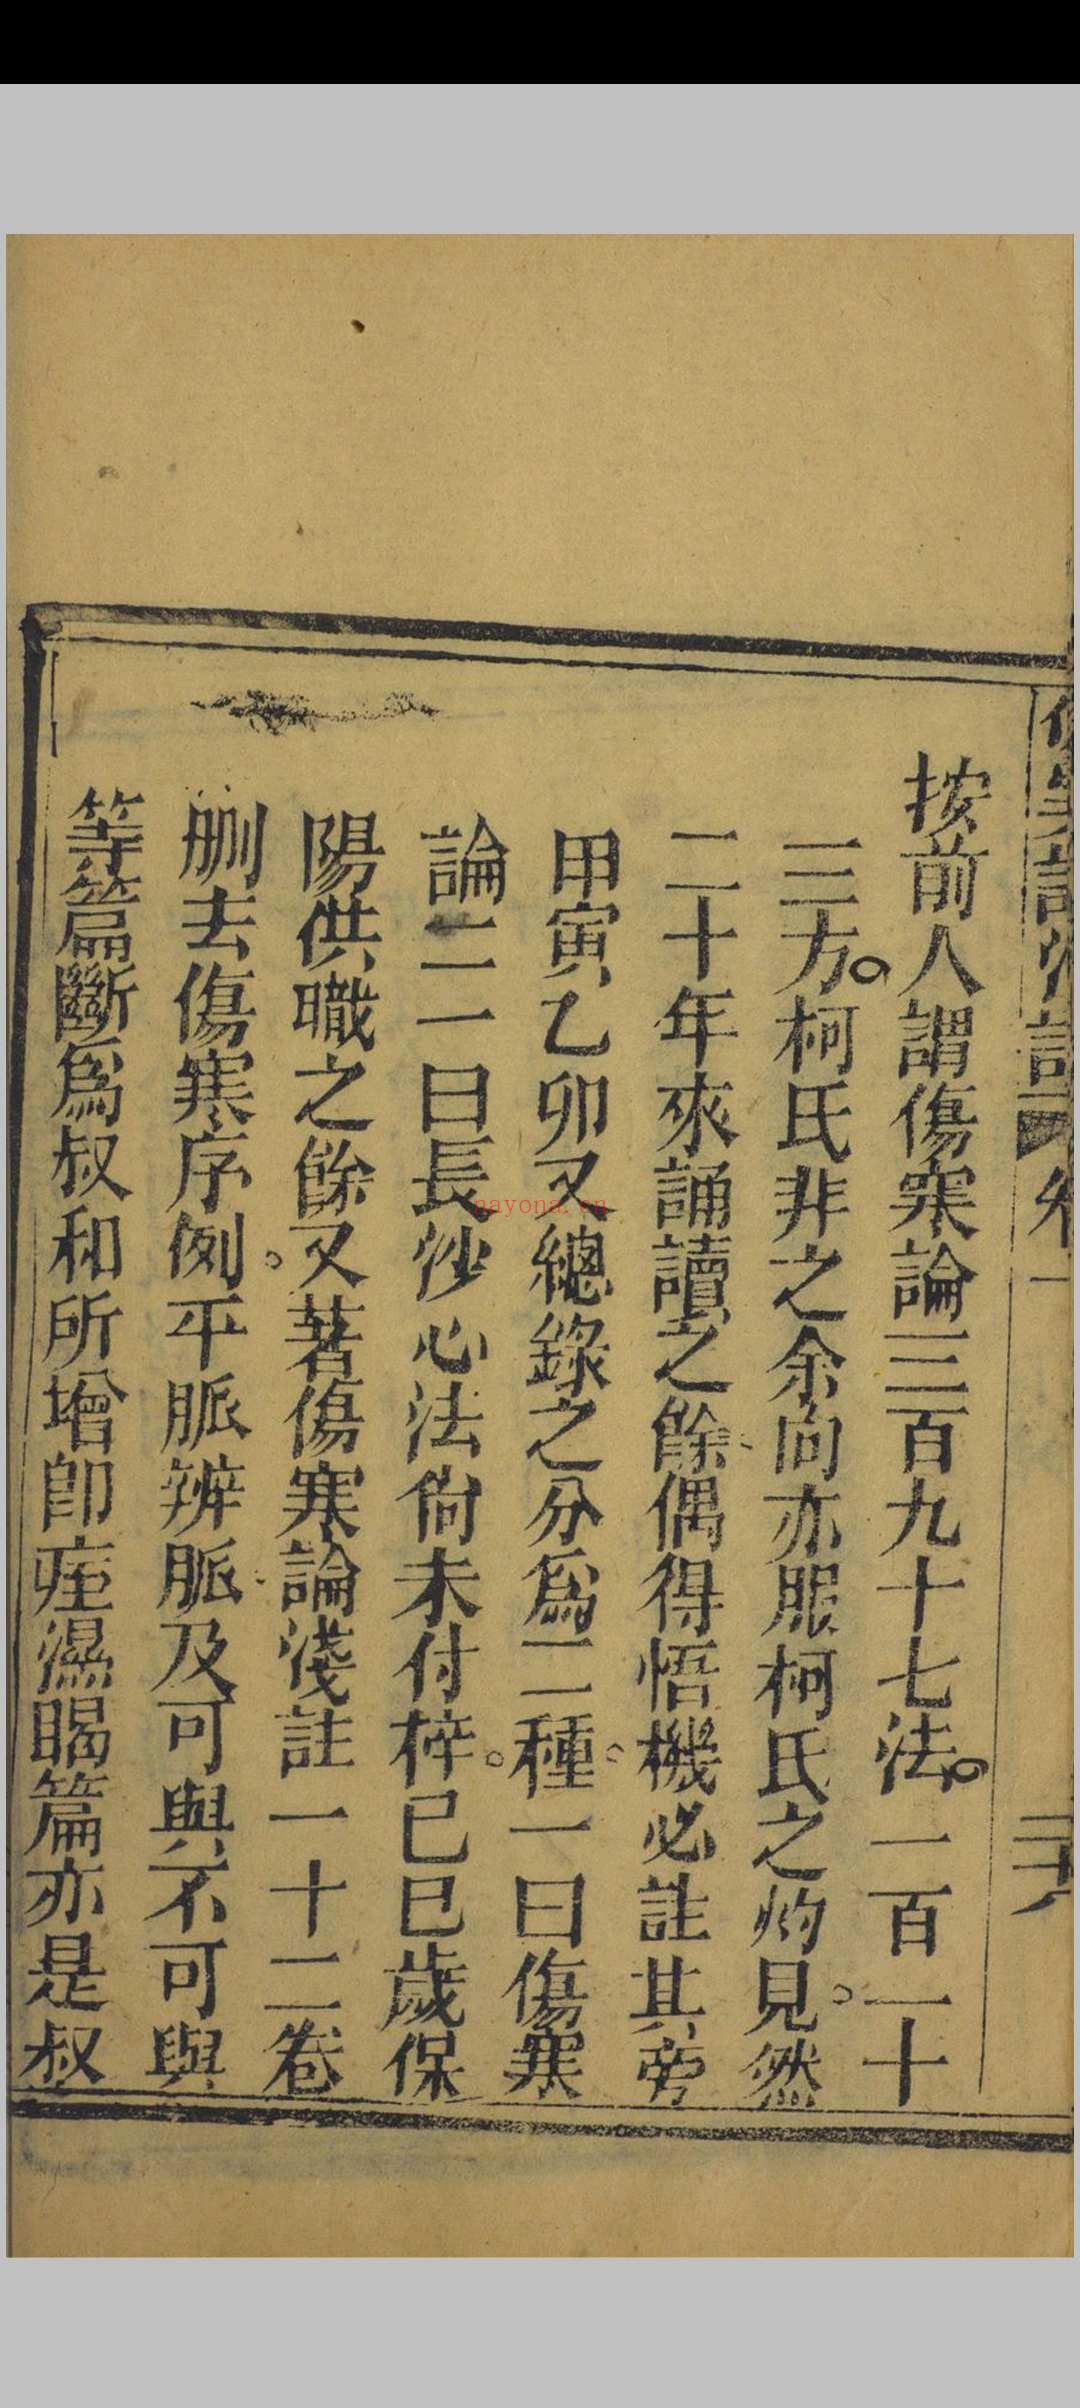 按前人謂傷寒論三百九十七法。一百一十
三方。柯氏非之余向亦服柯氏之灼見。然
二十年來誦讀之餘偶得悟機必註其旁
甲寅乙卯又總錄之分為二種。一曰傷寒
論一一曰長沙心法尙未付梓。己巳歲保
陽供職之餘又著傷寒論淺註一十二卷
刪去傷寒序例。平脈辨脈及可與不可與
等篇斷爲叔和所增卽痓濕暍篇亦是叔
nayona.cn